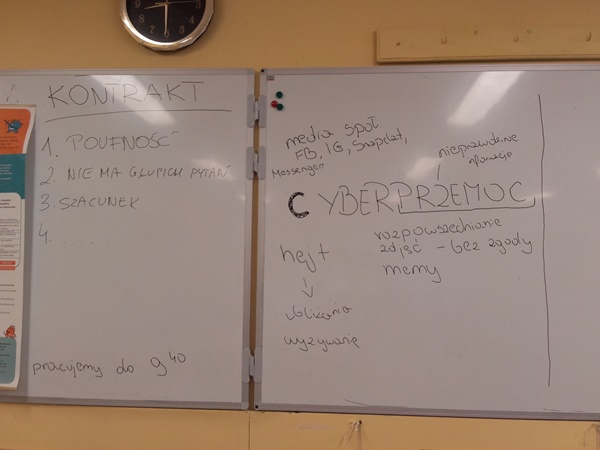 KONTRAKT
1. POUFNOŚĆ
2. NIE MA GŁUPICH PYTAŃ
3. SZACUNEK
4. ....
pracujemy do 9⁴⁰
media społ
FB, IG, Snapchat,
Messenger
nieprawdziwe
informacje
CYBERPRZEMOC
hejt
ubliżanie
wyzywanie
rozpowszechnianie
zdjęć - bez zgody
memy